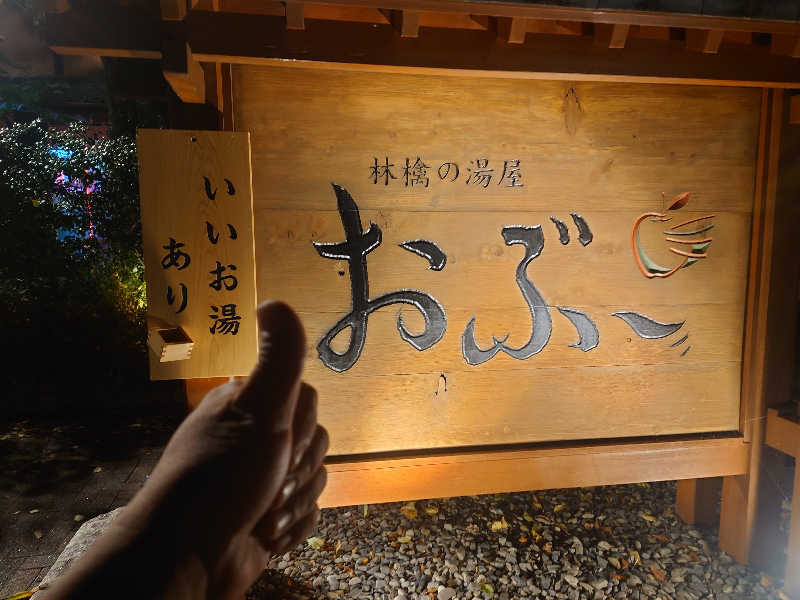 いいお湯
あり
林檎の湯屋
おぶ～